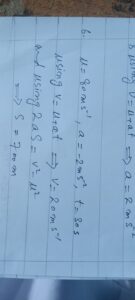 using v = u+at ⟹ a = 2 ms²
6. u = 80 ms⁻¹, a = -2 ms², t = 30s
using v = u+at ⟹ v = 20 ms⁻¹
and using 2as = v² - u²
⟹ s = 700m